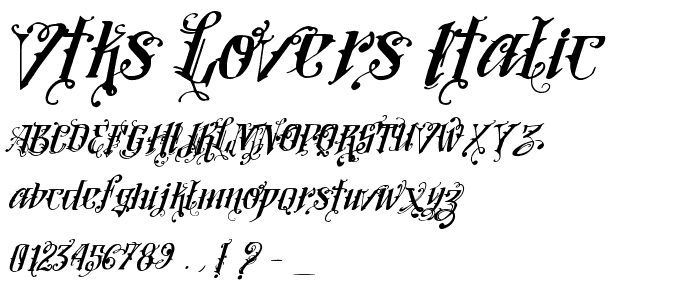 Vtks Lovers Italic
ABCDEFGHIJKLMNOPQRSTUVWXYZ
abcdefghijklmnopqrstuvwxyz
0123456789 . , ! ? - _